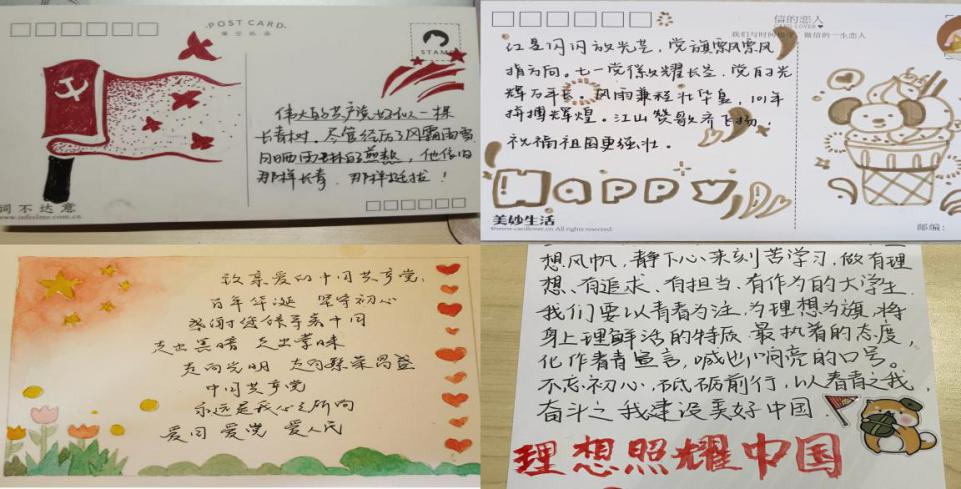 POST CARD
STAMP
伟大的共产党好似一棵
长青树。尽管经历了风霜雨雪
日晒雨淋的煎熬，他依旧
那样长青，那样挺拔！
词不达意
信的恋人
CARD LOVER
我们与时间恋爱 做信的一生恋人
红星闪闪放光芒，党旗飘飘
指方向。七一党徽久耀长空，党的光
辉万年长。风雨兼程壮华夏，101年
拼搏辉煌。江山赞歌齐飞扬，
祝福祖国更强壮。
HAPPY
美妙生活
©www.cardlover.cn All rights reserved
邮编：
致亲爱的中国共产党：
百年华诞 坚守初心
感谢您领导着中国
走出黑暗 走出蒙昧
走向光明 走向繁荣昌盛
中国共产党
永远是我心之所向
爱国 爱党 爱人民
想风帆，静下心来刻苦学习，做有理
想、有追求、有担当、有作为的大学生
我们要以青春为注，为理想为旗，将
身上理鲜活的特质，最执着的态度，
化作青春宣言，喊出响亮的口号。
不忘初心，砥砺前行，以青春之我，
奋斗之我建设美好中国．
理想照耀中国